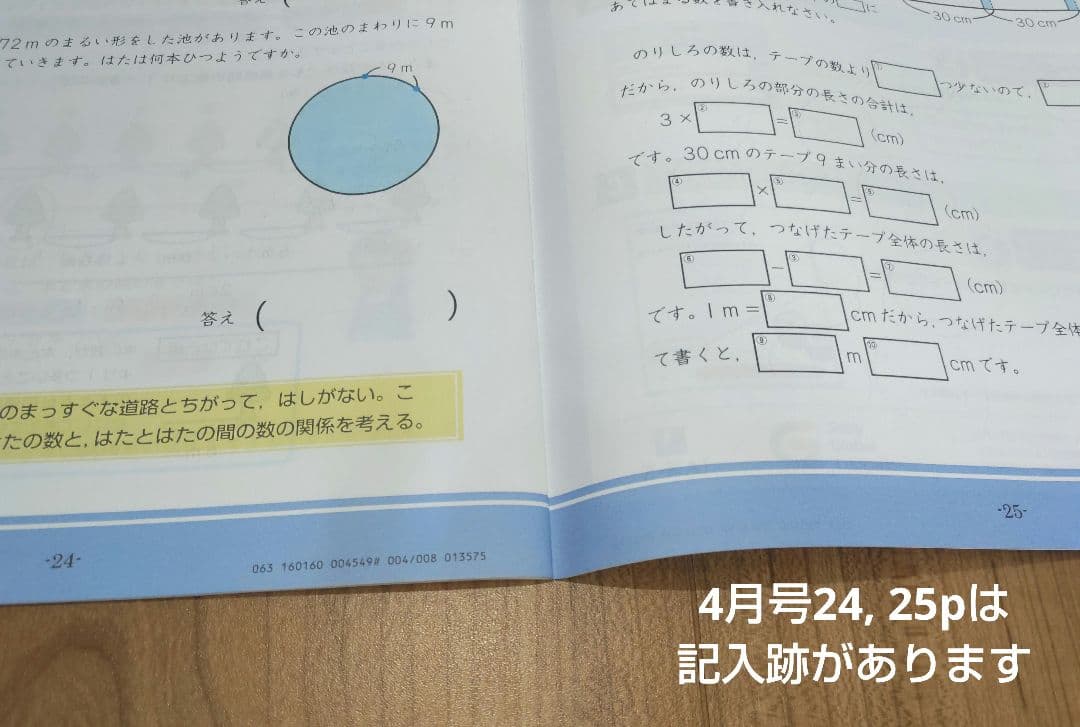 答え (
72mのまるい形をした池があります。この池のまわりに9m
ていきます。はたは何本ひつようですか。
9m
答え ( )
のまっすぐな道路とちがって，はしがない。こ
たの数と，はたとはたの間の数の関係を考える。
-24-
063 160160 004549# 004/008 013575
に
あてはまる数を書き入れなさい。
30cm 30cm
のりしろの数は，テープの数より① つ少ないので，①
だから，のりしろの部分の長さの合計は，
3×② =③ (cm)
です。30cmのテープ9まい分の長さは，
④ ×⑤ = (cm)
したがって，つなげたテープ全体の長さは，
⑥ − =⑦ (cm)
です。1m=⑧ cmだから，つなげたテープ全体
て書くと，⑨ m⑩ cmです。
-25-
4月号24, 25pは
記入跡があります